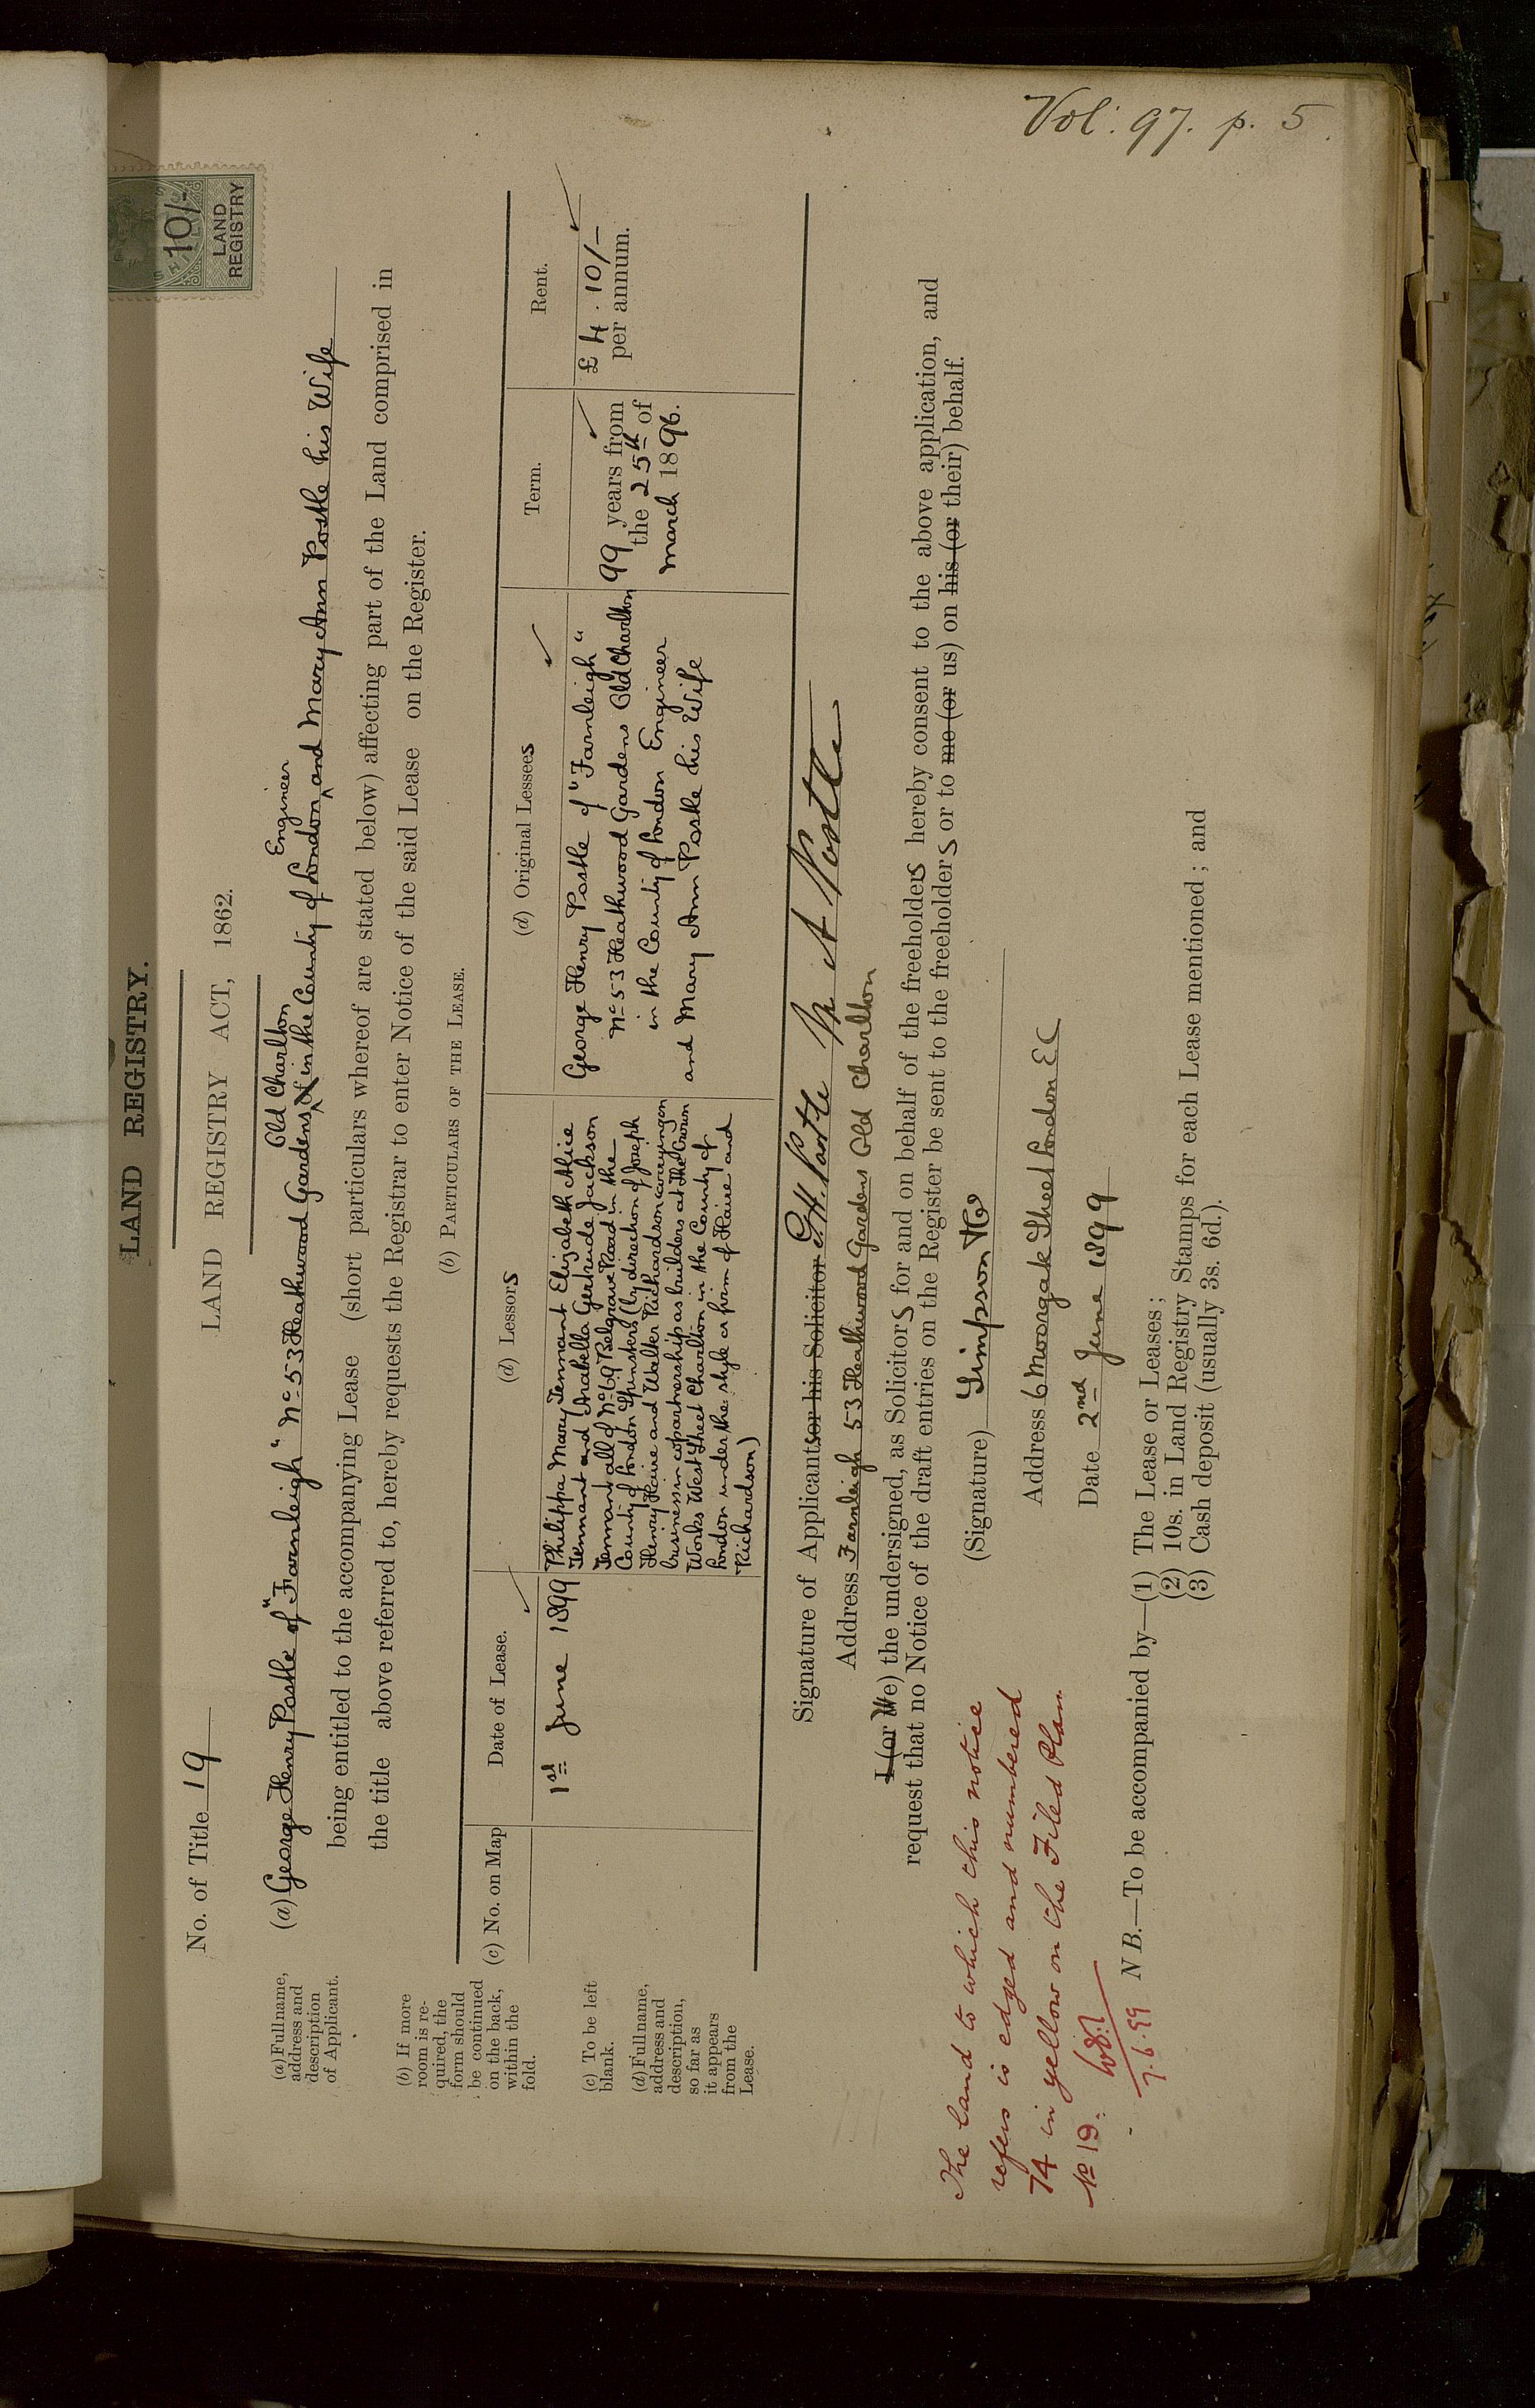 Vol: 97. p. 5.
10/-
LAND
REGISTRY
LAND REGISTRY.
LAND REGISTRY ACT, 1862.
No. of Title 19
(a) Full name,
address and
description
of Applicant.
(a) George Henry Postle of "Farnleigh" No 53 Heathwood Gardens Old Charlton in the County of London Engineer and Mary Ann Postle his Wife
being entitled to the accompanying Lease (short particulars whereof are stated below) affecting part of the Land comprised in
the title above referred to, hereby requests the Registrar to enter Notice of the said Lease on the Register.
(b) If more
room is re-
quired, the
form should
be continued
on the back,
within the
fold.
(b) PARTICULARS OF THE LEASE.
(c) No. on Map
Date of Lease.
(d) Lessors
(d) Original Lessees
Term.
Rent.
(c) To be left
blank.
(d) Full name,
address and
description,
so far as
it appears
from the
Lease.
1st June 1899
Philippa Mary Tennant Elizabeth Alice
Tennant and Arabella Gertrude Jackson
Tennant all of No 69 Belgrave Road in the
County of London Spinsters (by direction of Joseph
Henry Haire and Walter Richardson carrying on
business in copartnership as builders at The Crown
Works West Street Charlton in the County of
London under the style or firm of Haire and
Richardson)
George Henry Postle of "Farnleigh"
No 53 Heathwood Gardens Old Charlton
in the County of London Engineer
and Mary Ann Postle his Wife
99 years from
the 25th of
March 1896.
£4.10/-
per annum.
Signature of Applicants or his Solicitor G. H. Postle M A Postle
Address Farnleigh 53 Heathwood Gardens Old Charlton
I (or We) the undersigned, as Solicitors for and on behalf of the freeholders hereby consent to the above application, and
request that no Notice of the draft entries on the Register be sent to the freeholders or to me (or us) on his (or their) behalf.
(Signature) Simpson &Co
Address 6 Moorgate Street London EC
Date 2nd June 1899
The land to which this notice
refers is edged and numbered
74 in yellow on the Filed Plan
No 19.
7.6.99
N B.—To be accompanied by—(1) The Lease or Leases;
(2) 10s. in Land Registry Stamps for each Lease mentioned; and
(3) Cash deposit (usually 3s. 6d.).